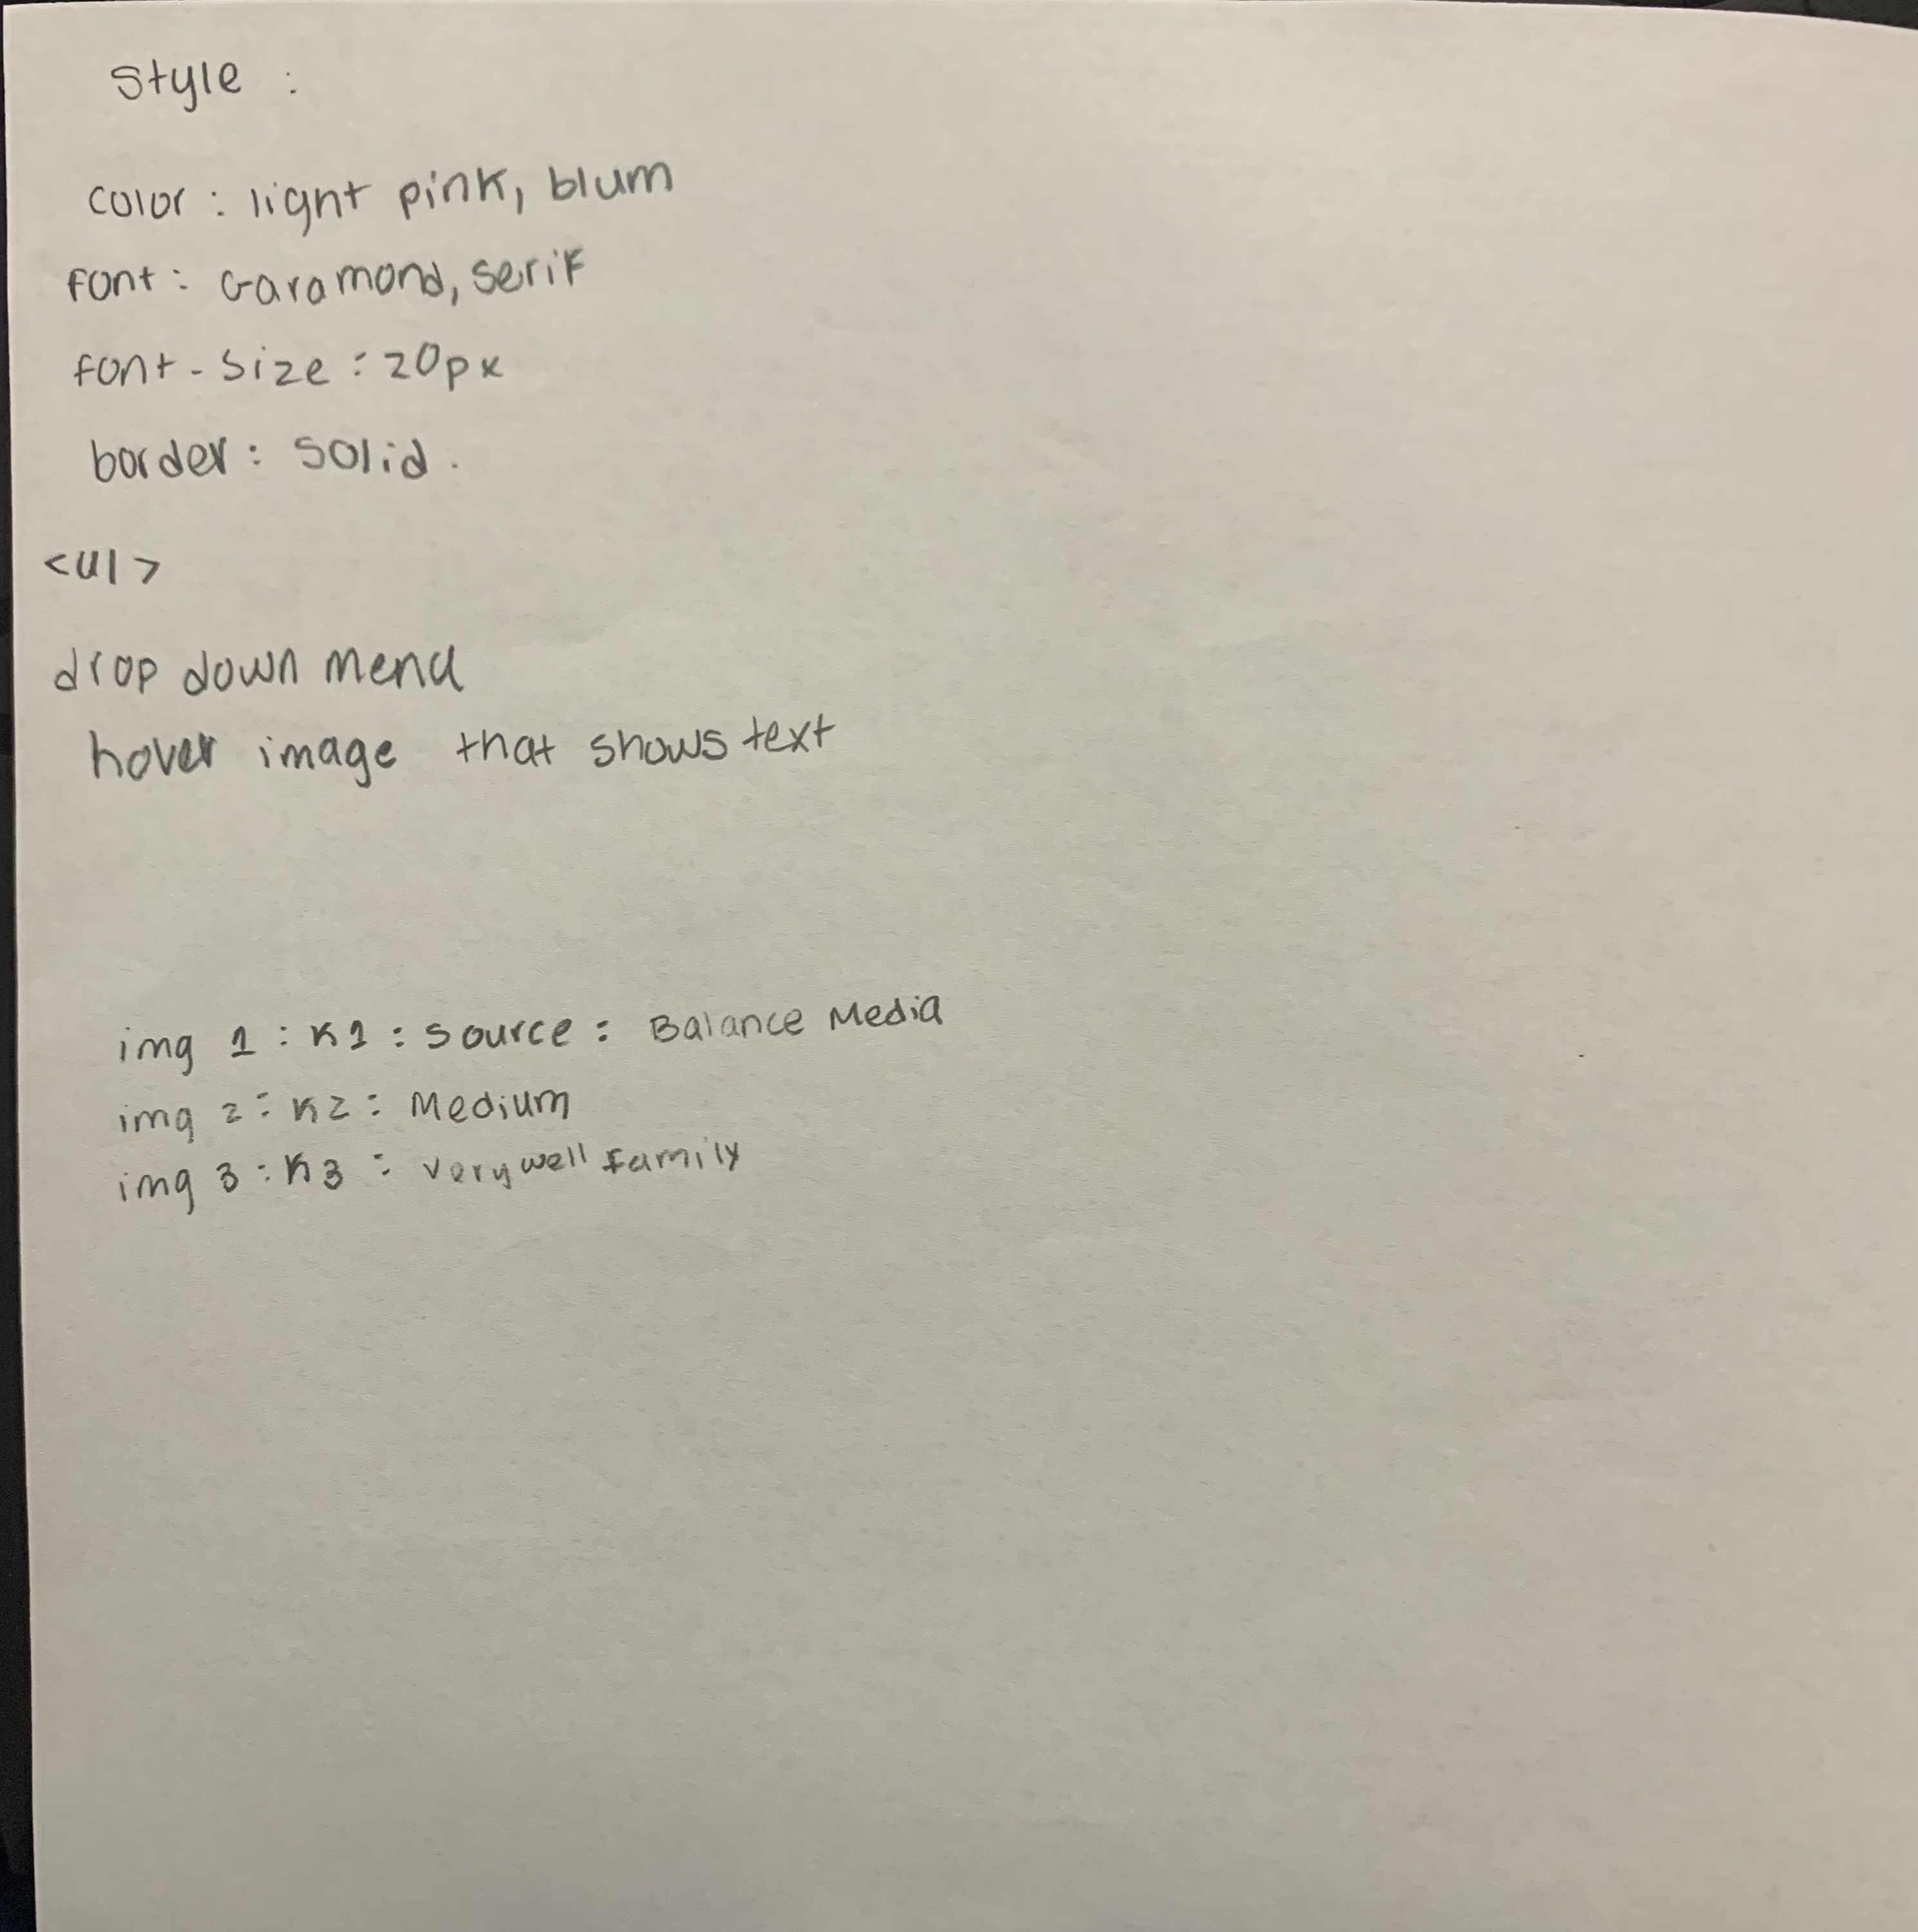 style :
color : light pink, blum
font : Garamond, serif
font - size : 20px
border : solid .
<ul>
drop down menu
hover image that shows text
img 1 : K1 : source : Balance Media
img 2 : K2 : Medium
img 3 : K3 : verywell family